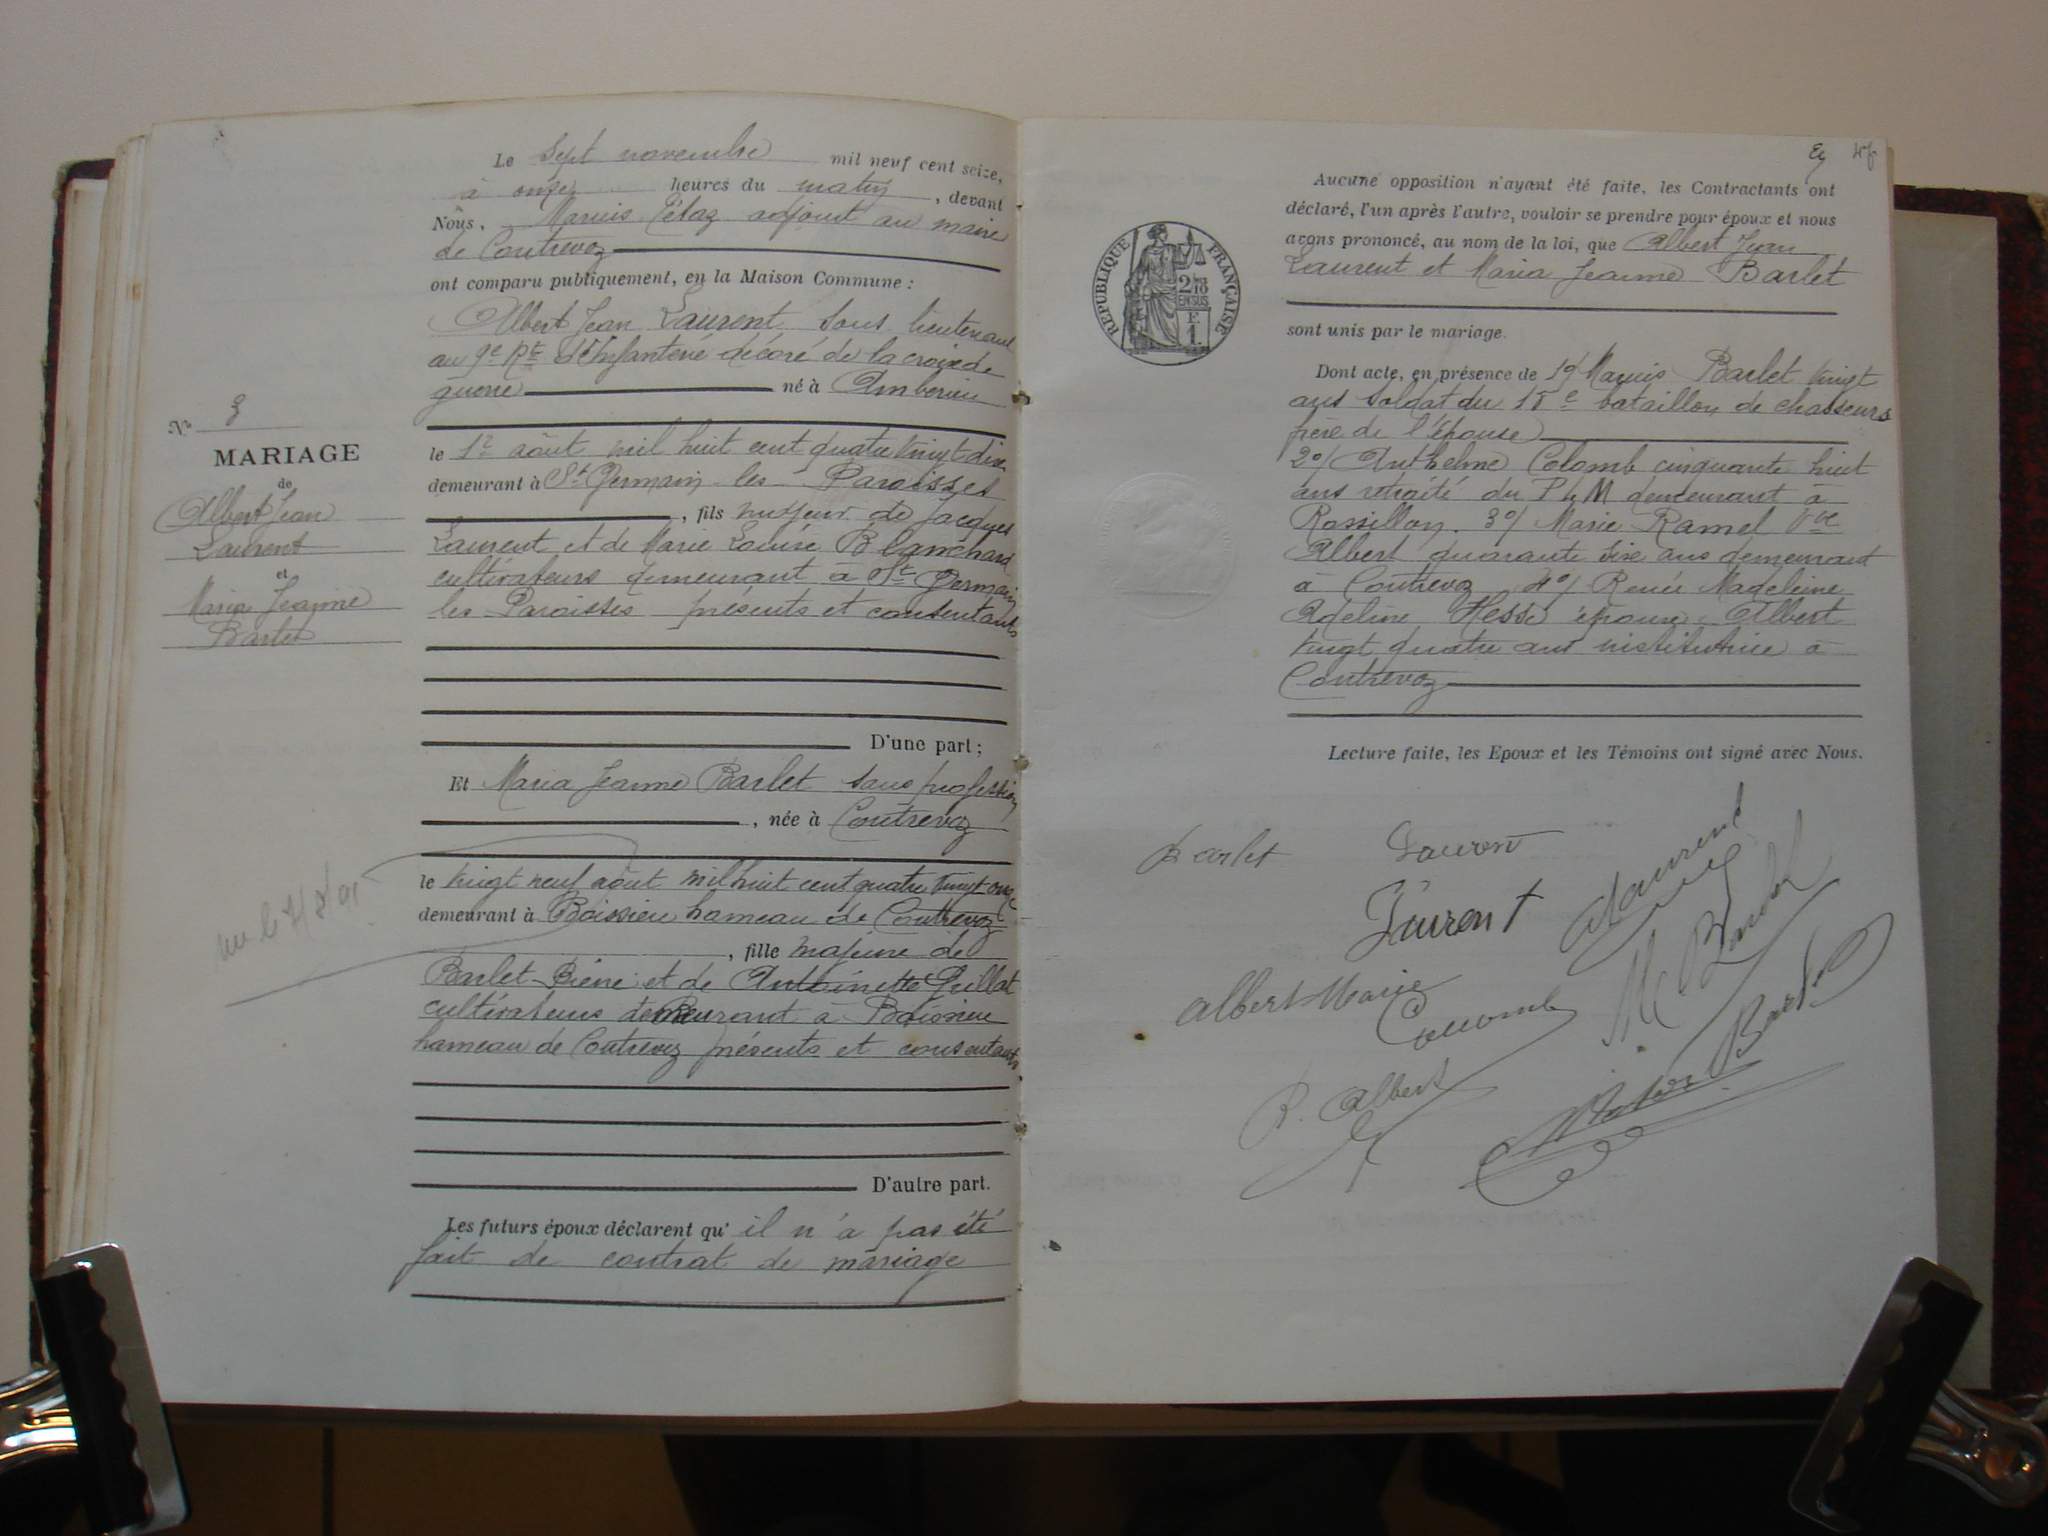 Le sept novembre mil neuf cent seize,
à onze heures du matin, devant
Nous, Marius Pélaz adjoint au maire
de Contrevoz
ont comparu publiquement, en la Maison Commune :
Albert Jean Laurent sous lieutenant
au 9e Rt d'Infanterie décoré de la croix de
guerre né à Ambérieu
le 1er août mil huit cent quatre vingt dix
demeurant à St Germain les Paroisses
, fils majeur de Jacques
Laurent et de Marie Louise Blanchard
cultivateurs demeurant à St Germain
les Paroisses présents et consentants
D'une part ;
Et Maria Jeanne Barlet sans profession
, née à Contrevoz
le vingt neuf août mil huit cent quatre vingt onze
demeurant à Boissieu hameau de Contrevoz
, fille majeure de
Barlet Pierre et de Antoinette Guillot
cultivateurs demeurant à Boissieu
hameau de Contrevoz présents et consentants
D'autre part.
Les futurs époux déclarent qu' il n'a pas été
fait de contrat de mariage
No 3
MARIAGE
de
Albert Jean
Laurent
et
Maria Jeanne
Barlet
RÉPUBLIQUE FRANÇAISE
Aucune opposition n'ayant été faite, les Contractants ont
déclaré, l'un après l'autre, vouloir se prendre pour époux et nous
avons prononcé, au nom de la loi, que Albert Jean
Laurent et Maria Jeanne Barlet
sont unis par le mariage.
Dont acte, en présence de 1o/ Marius Barlet vingt
ans soldat du 15e bataillon de chasseurs
frère de l'épouse
2o/ Anthelme Colomb cinquante huit
ans retraité du P L M demeurant à
Rossillon. 3o/ Marie Ramel Vve
Albert quarante six ans demeurant
à Contrevoz 4o/ Renée Madeleine
Adeline Hesse épouse Albert
vingt quatre ans institutrice à
Contrevoz
Lecture faite, les Epoux et les Témoins ont signé avec Nous.
Barlet
Laurent
Laurent
Albert Marie
Colomb
M Barlet
R. Albert
Barlet